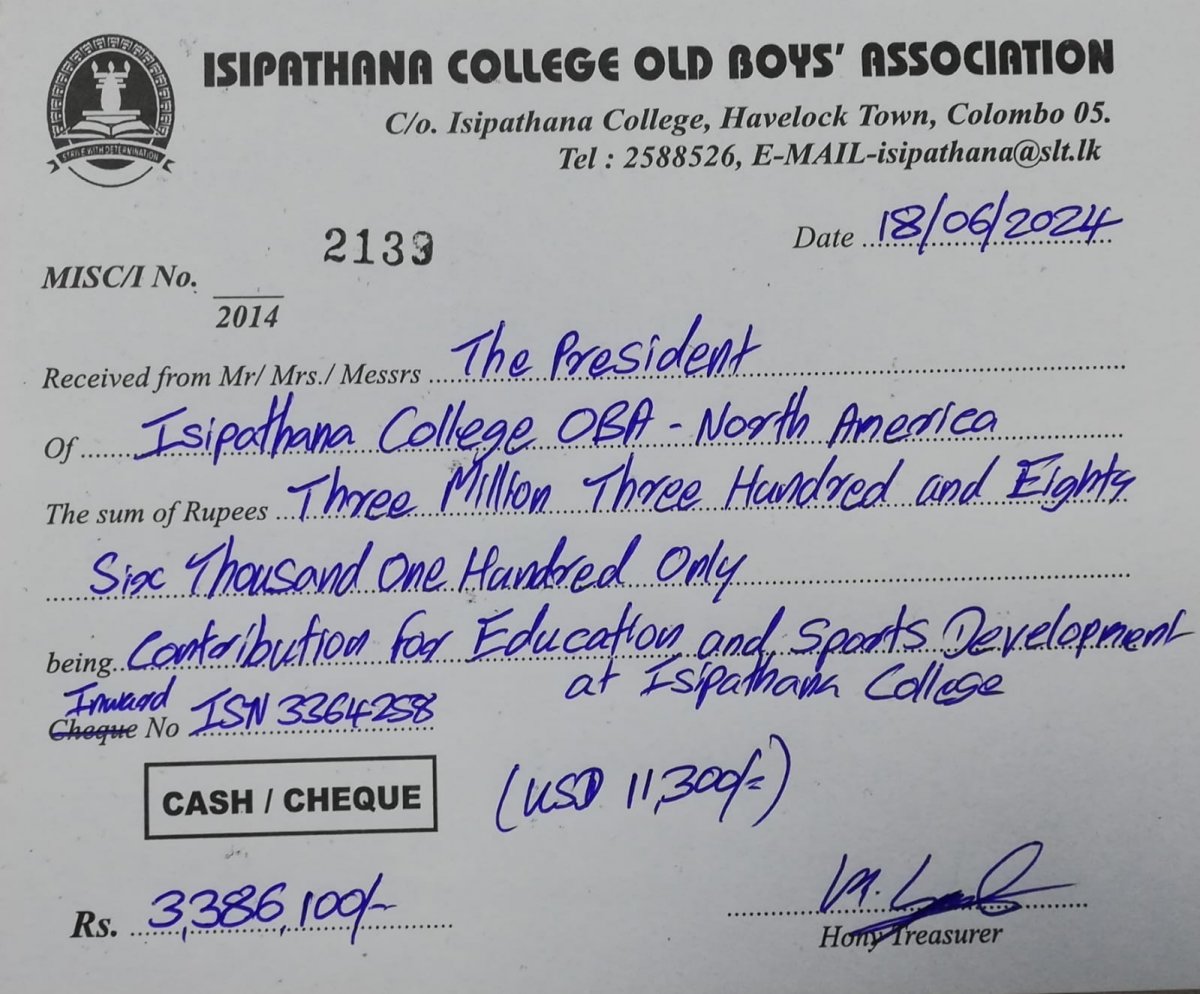 ISIPATHANA COLLEGE OLD BOYS' ASSOCIATION
C/o. Isipathana College, Havelock Town, Colombo 05.
Tel : 2588526, E-MAIL-isipathana@slt.lk
STRIVE WITH DETERMINATION
2139
Date 18/06/2024
MISC/I No.
2014
Received from Mr/ Mrs./ Messrs The President
Of Isipathana College OBA - North America
The sum of Rupees Three Million Three Hundred and Eighty
Six Thousand One Hundred Only
being Contribution for Education and Sports Development
at Isipathana College
Inward
Cheque No ISN 3364258
CASH / CHEQUE
(USD 11,300/=)
Rs. 3,386,100/-
Hony Treasurer